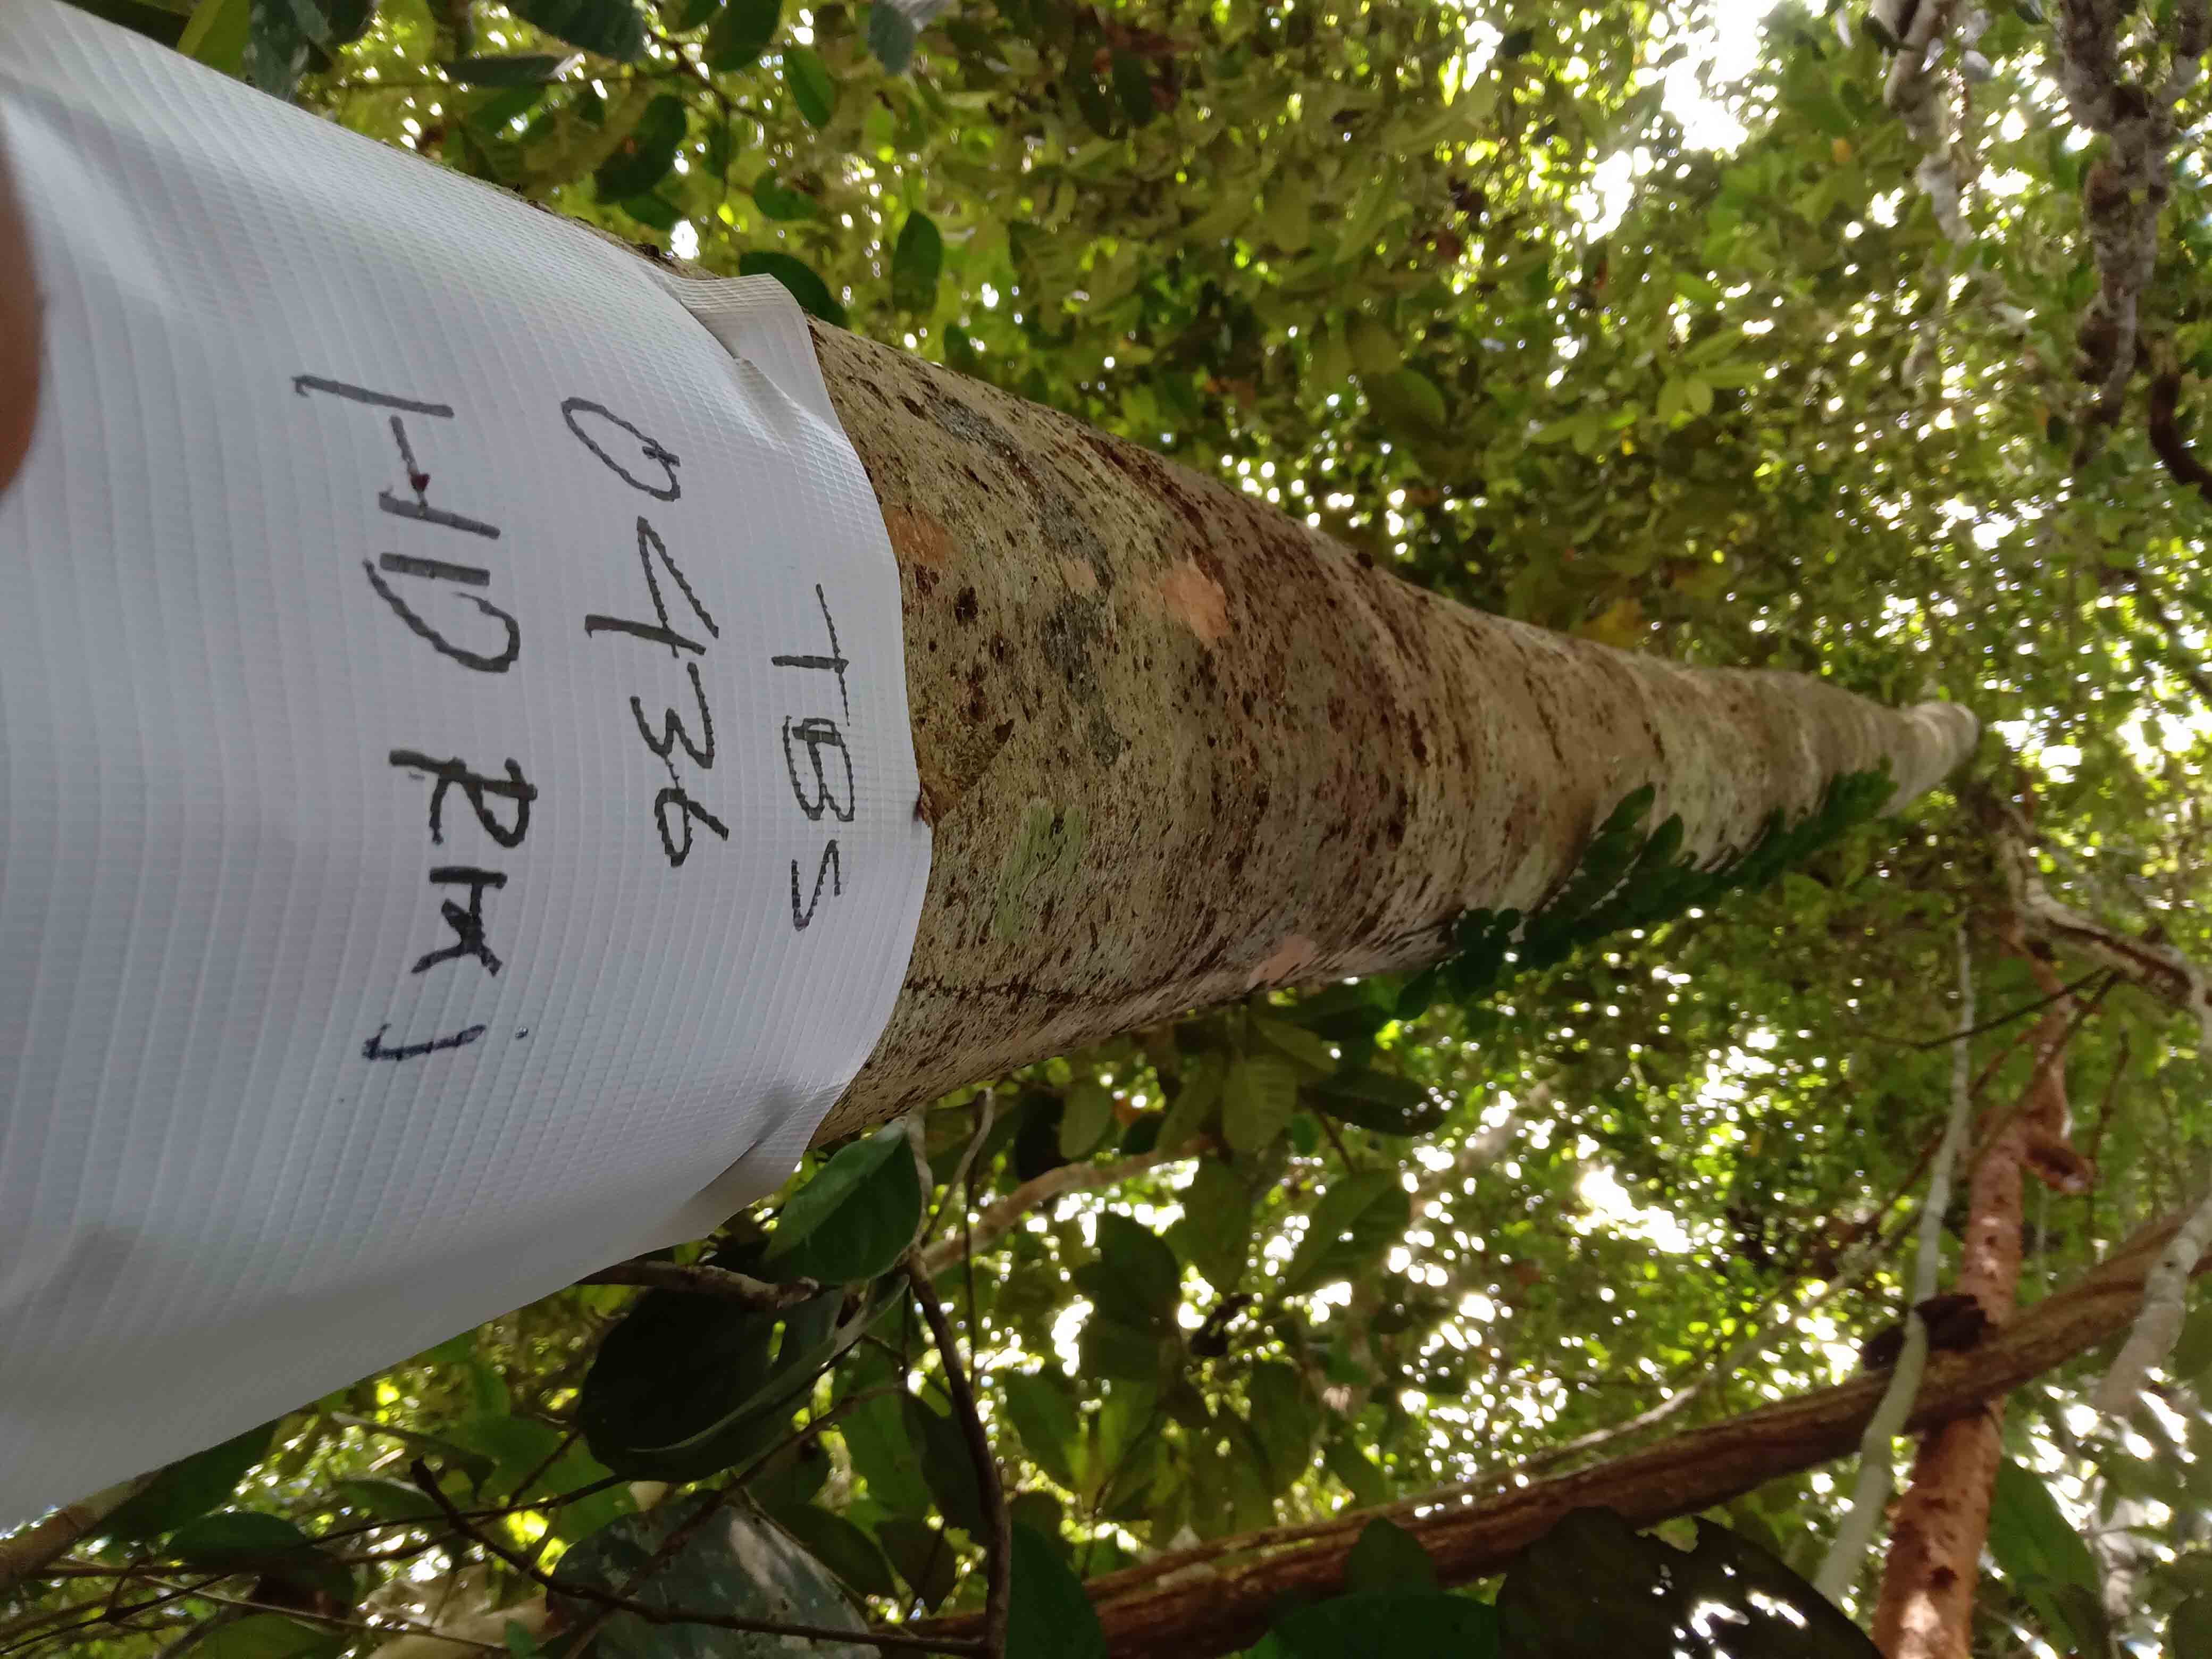 TBS
0436
HD RMj